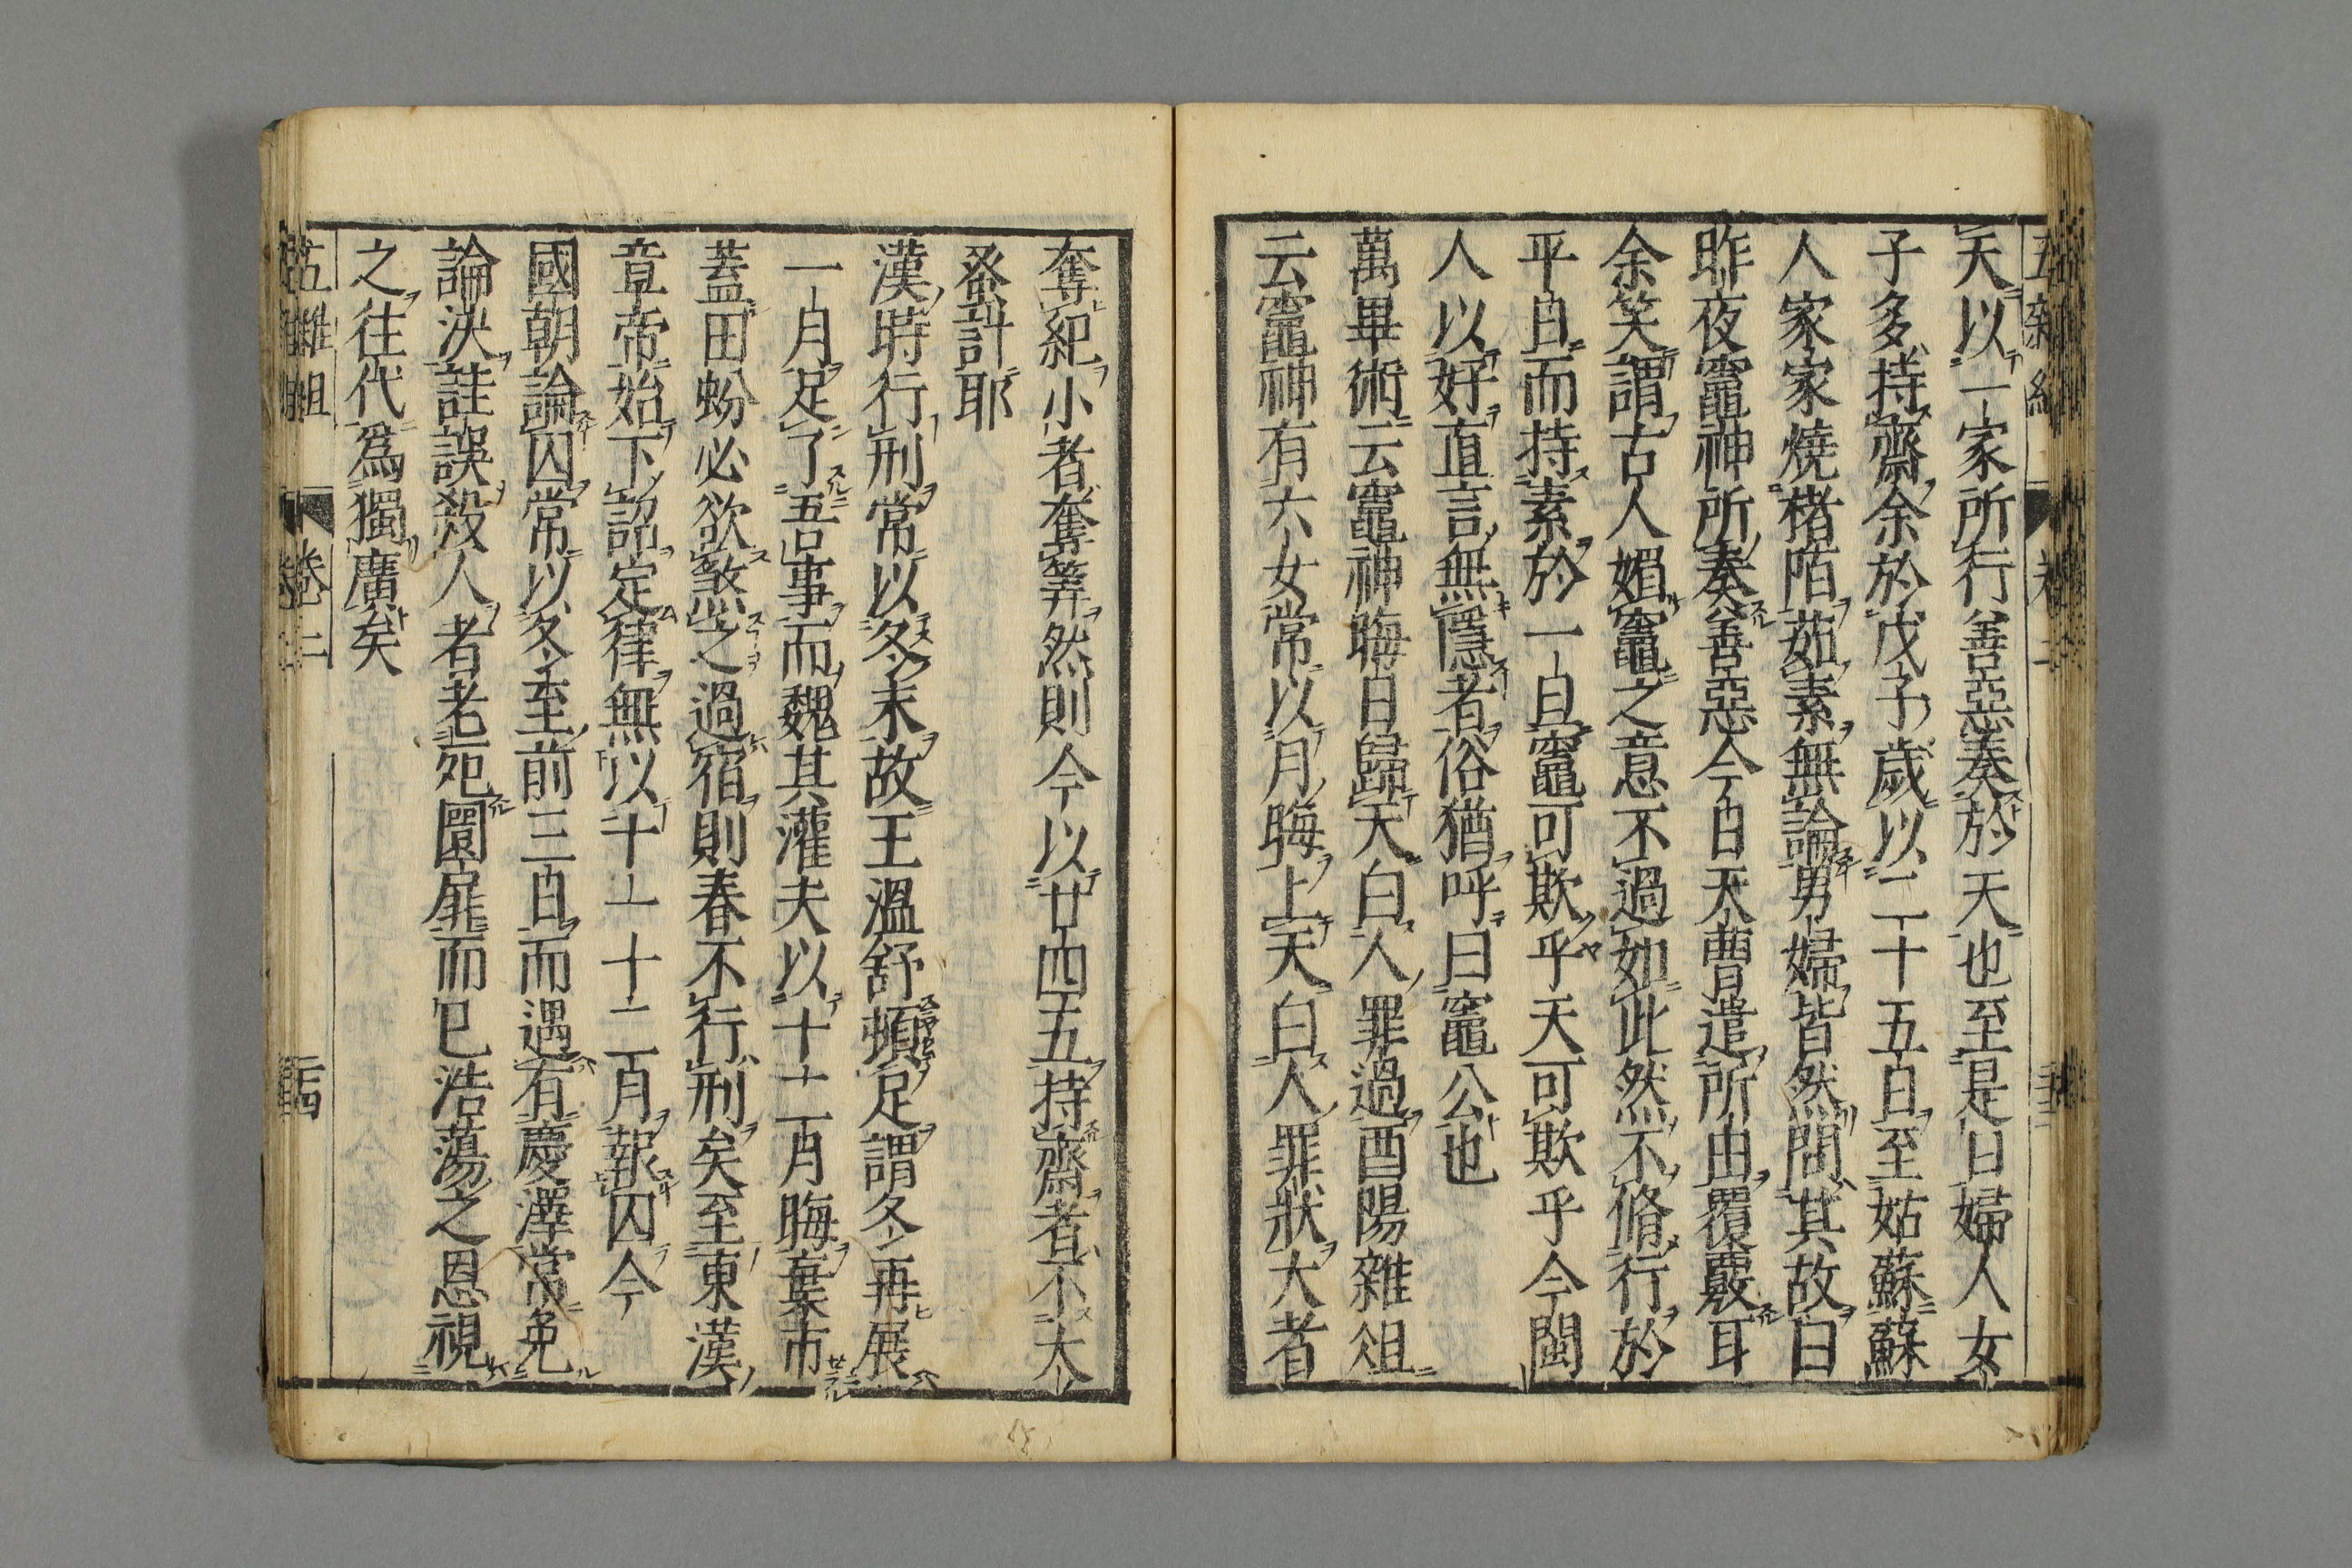 天以一家所行善惡奏於天也至是日婦人女
子多持齋余於戊子歲以二十五日至姑蘇蘇
人家家燒楮陌茹素無論男婦皆然問其故曰
昨夜竈神所奏善惡今日天曹遣所由覆覈耳
余笑謂古人媚竈之意不過如此然不脩行於
平日而持素於一旦竈可欺乎天可欺乎今閩
人以好直言無隱者俗猶呼曰竈公也
萬畢術云竈神晦日歸天白人罪過酉陽雜俎
云竈神有六女常以月晦上天白人罪狀大者
奪紀小者奪筭然則今以廿四五持齋者不太
蚤計耶
漢時行刑常以冬末故王溫舒頓足謂冬再展
一月足了吾事而魏其灌夫以十二月晦棄市
蓋田蚡必欲煞之過宿則春不行刑矣至東漢
章帝始下詔定律無以十一十二月報囚今
國朝論囚常以冬至前三日而遇有慶澤常免
論決註誤殺人者老死圜扉而已浩蕩之恩視
之往代爲獨廣矣
五雜俎 卷二